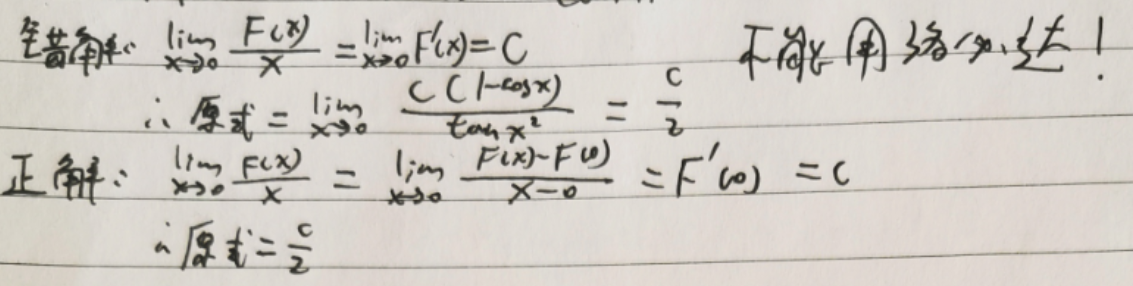 错解: lim_{x→0} F(x)/x = lim_{x→0} F'(x) = C 不能用洛必达!
∴ 原式 = lim_{x→0} C(1-cosx)/tanx² = c/2
正解: lim_{x→0} F(x)/x = lim_{x→0} (F(x)-F(0))/(x-0) = F'(0) = C
∴ 原式 = c/2